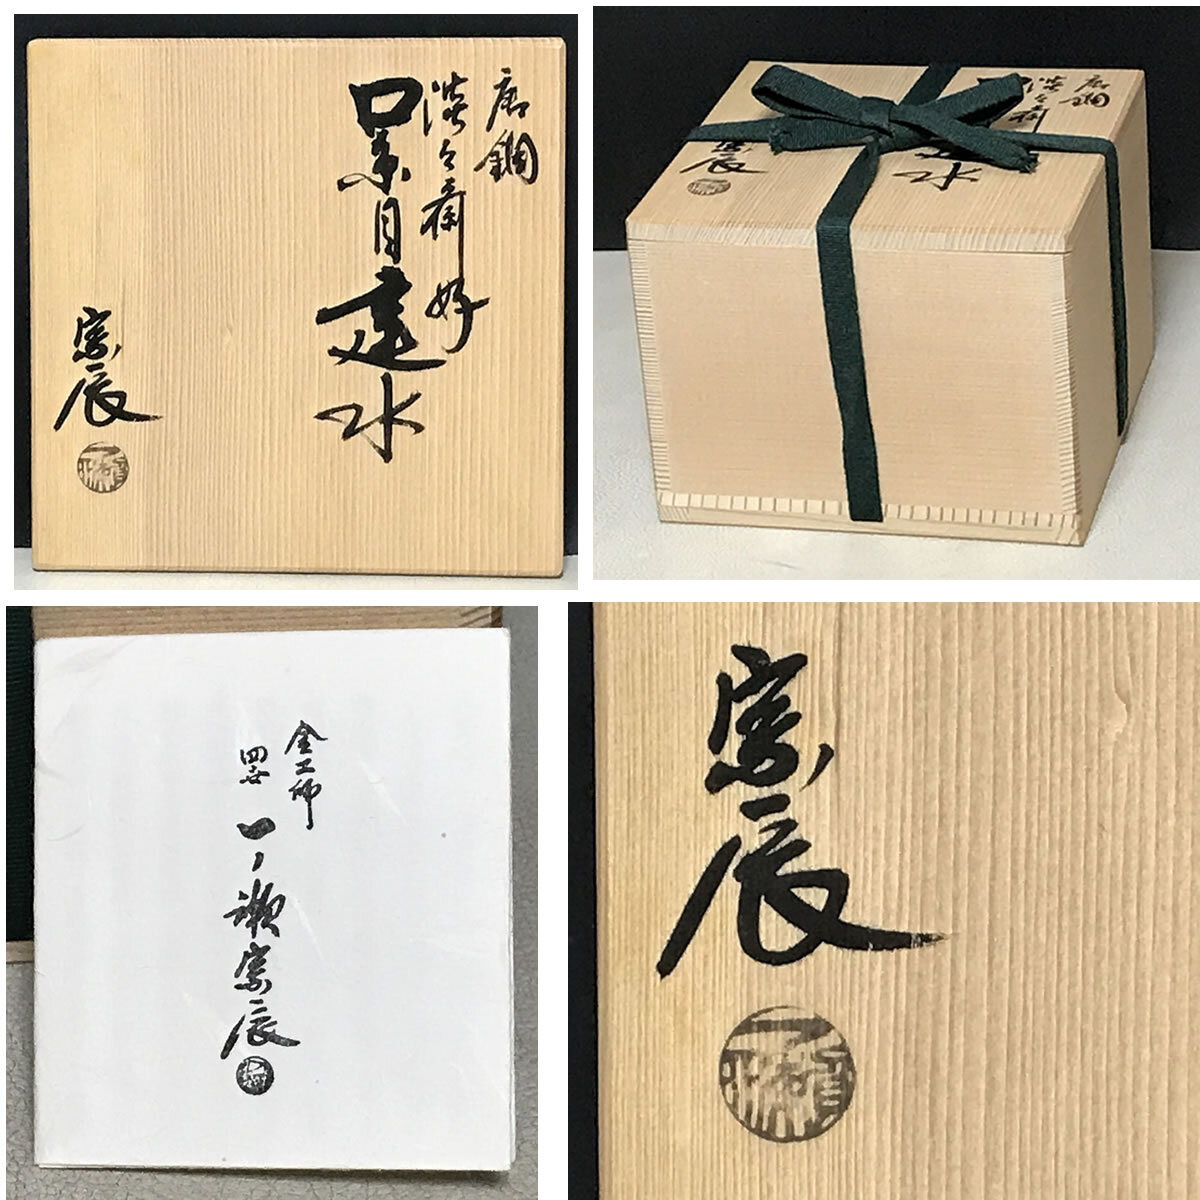 唐銅
淡々斎好
口糸目建水
宗辰
唐銅
淡々斎
水
宗辰
金工師
四世
一ノ瀬宗辰
宗辰